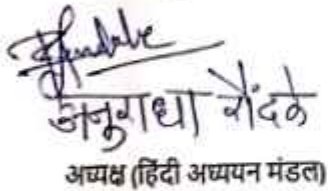 अनुराधा रौंदळे
अध्यक्ष (हिंदी अध्ययन मंडल)